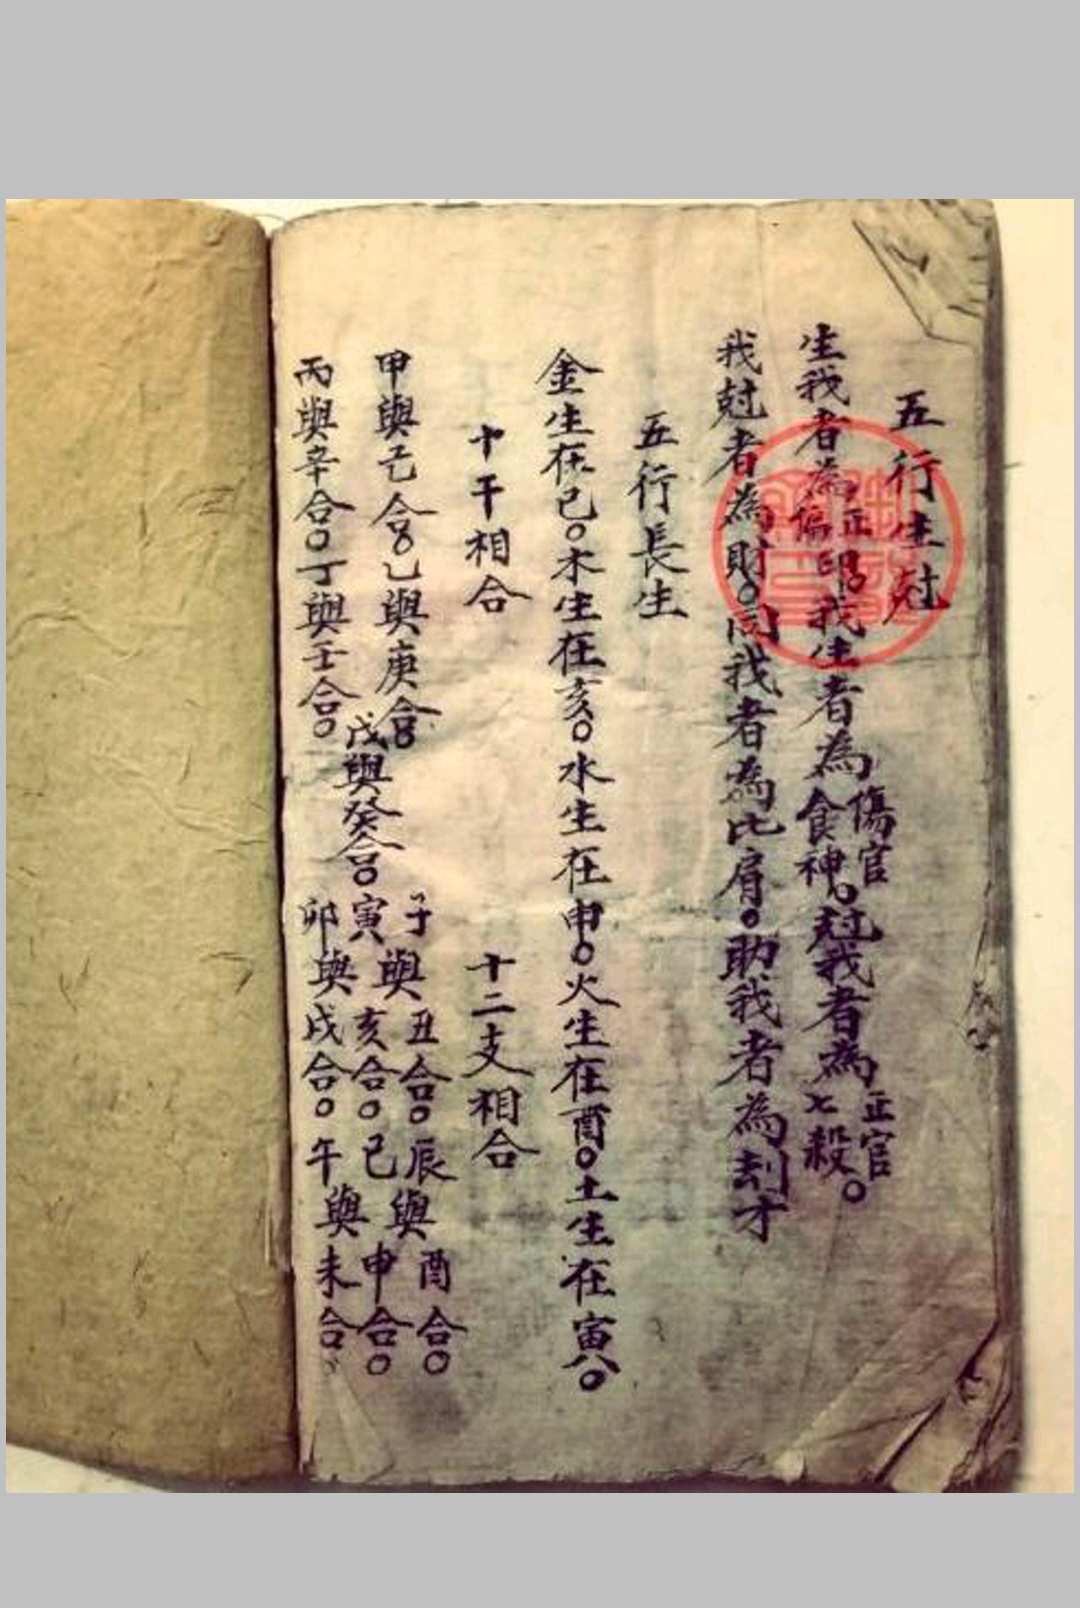 五行生尅
生我者為正偏印。我生者為傷官食神。尅我者為正官七殺。
我尅者為財。同我者為比肩。助我者為刦才
五行長生
金生在巳。木生在亥。水生在申。火生在酉。土生在寅。
十干相合
甲與己合。乙與庚合。
丙與辛合。丁與壬合。
戊與癸合。
十二支相合
子與丑合。寅與亥合。
卯與戌合。辰與酉合。
巳與申合。午與未合。